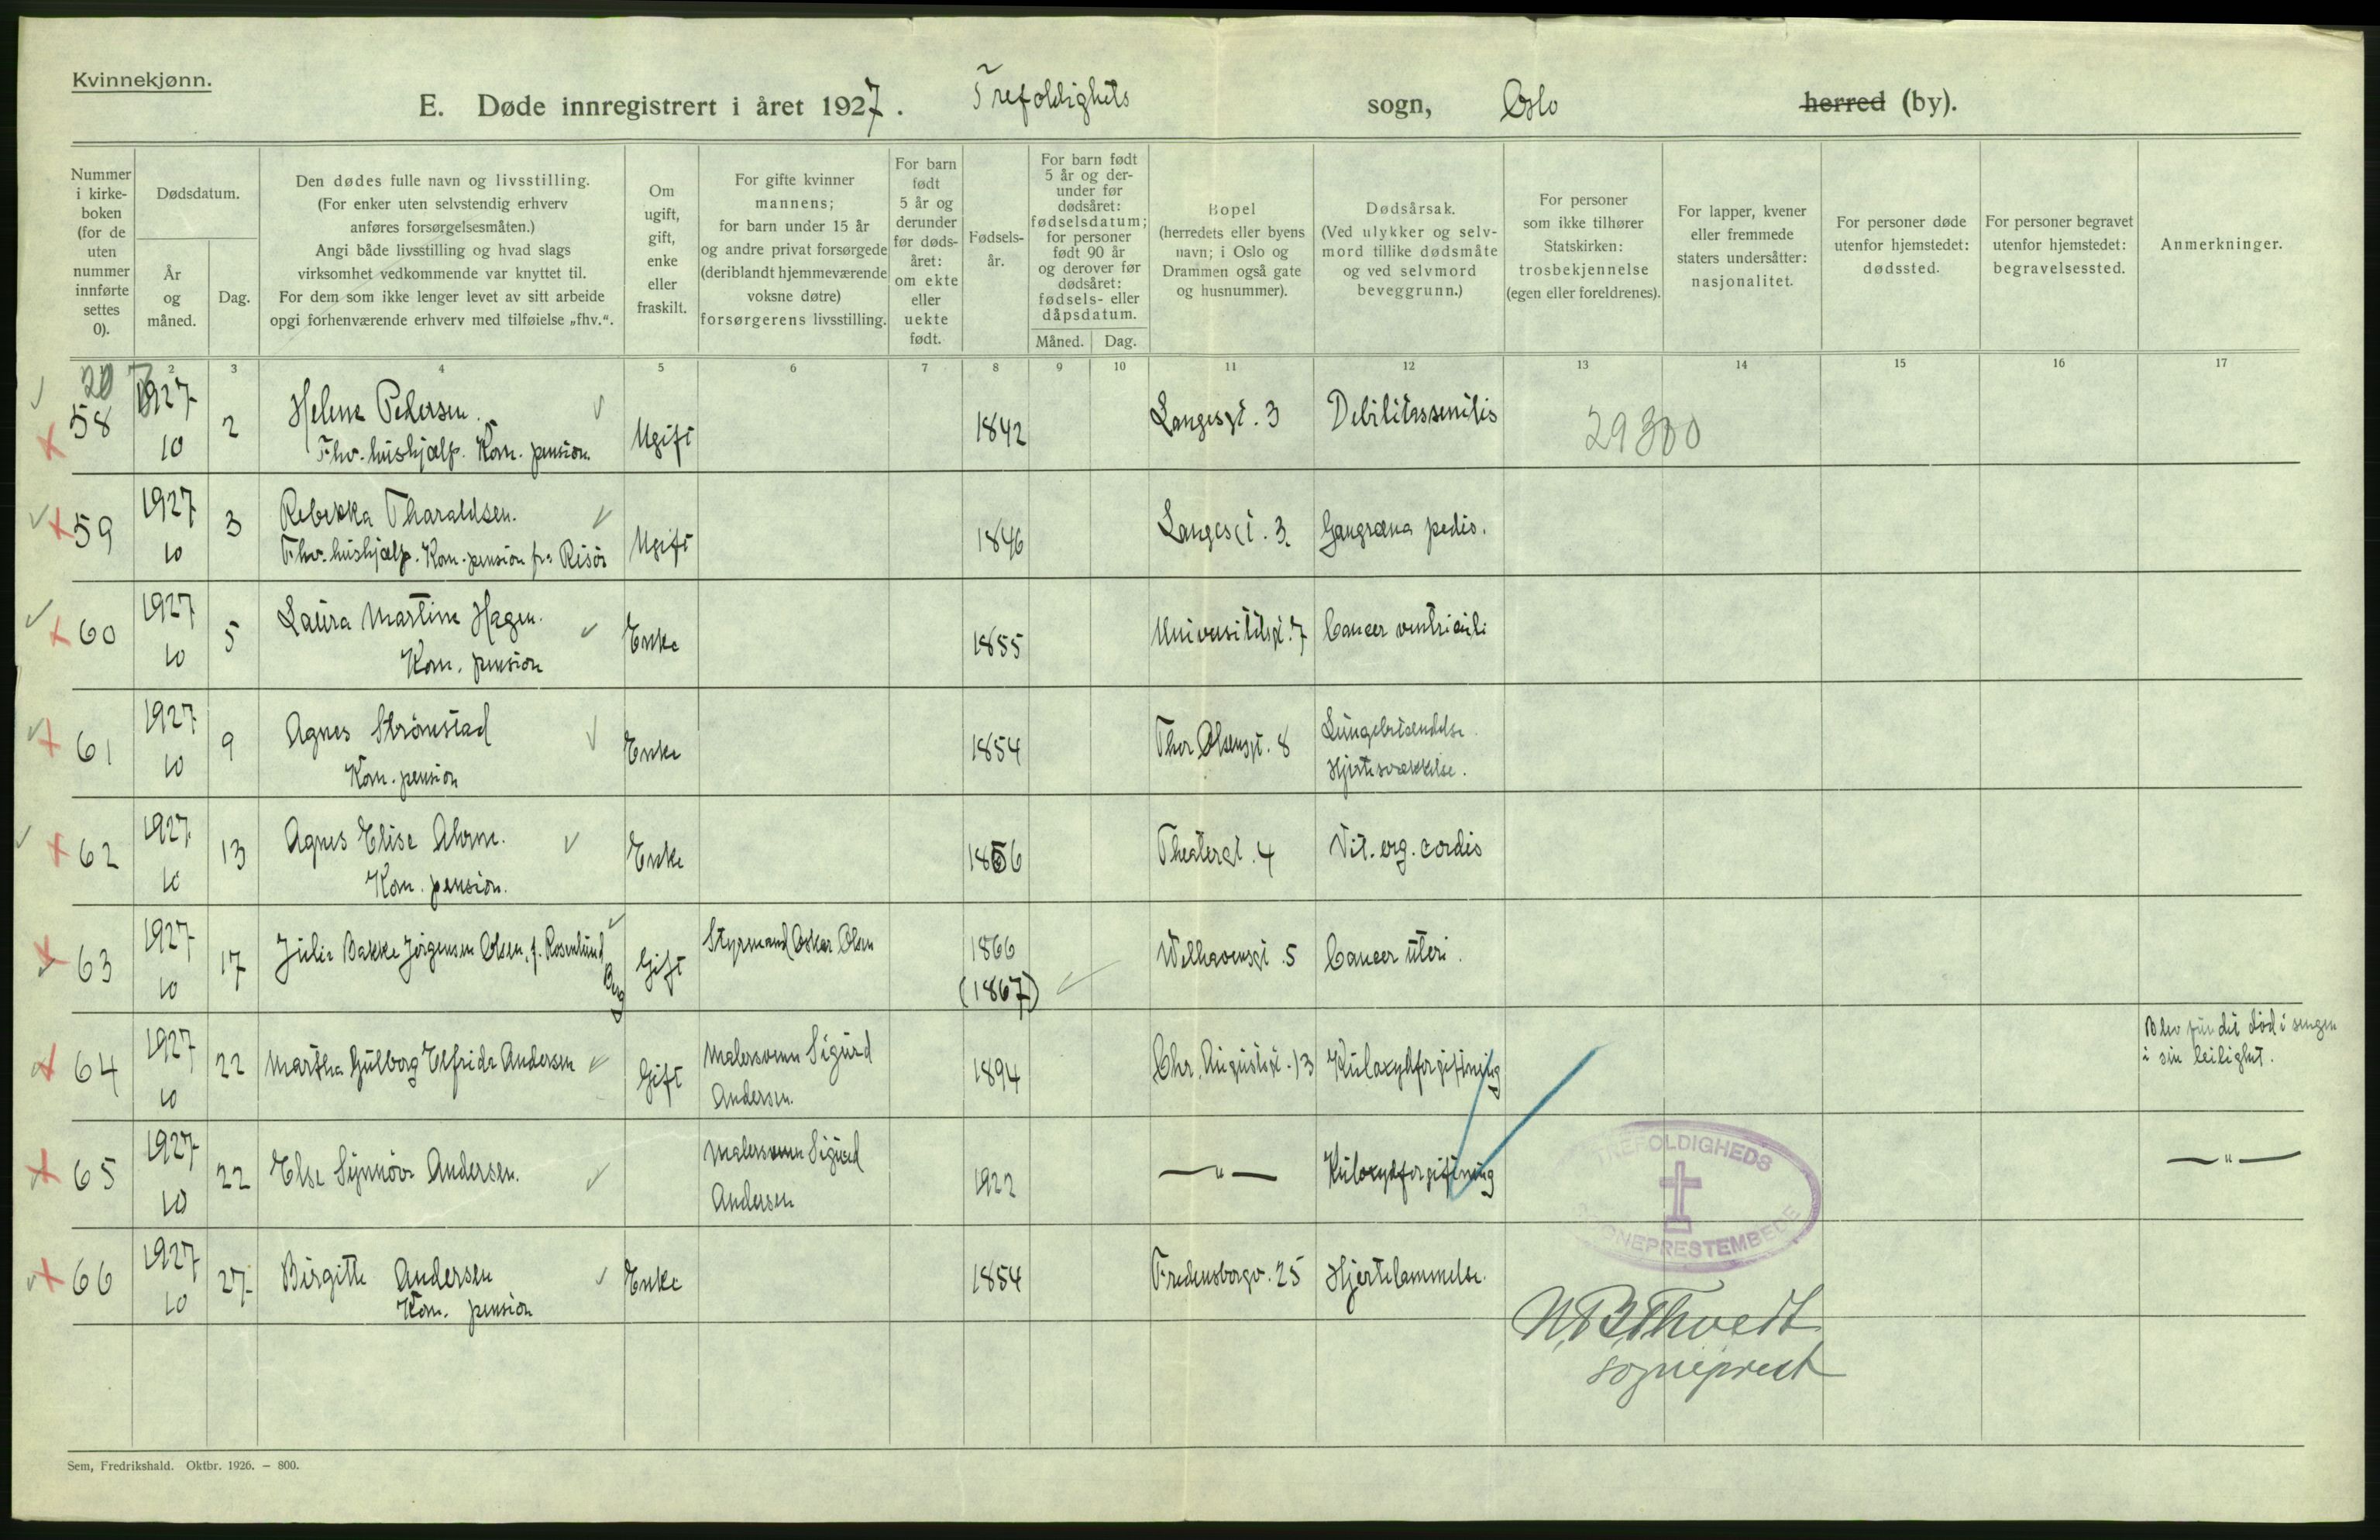 Kvinnekjønn.
E. Døde innregistrert i året 1927. Trefoldighets sogn, Oslo herred (by).
Nummer i kirke-boken (for de uten nummer innførte settes 0).
Dødsdatum.
År og måned.
Dag.
Den dødes fulle navn og livsstilling.
(For enker uten selvstendig erhverv
anføres forsørgelsesmåten.)
Angi både livsstilling og hvad slags
virksomhet vedkommende var knyttet til.
For dem som ikke lenger levet av sitt arbeide
opgi forhenværende erhverv med tilføielse „fhv.“.
Om ugift, gift, enke eller fraskilt.
For gifte kvinner
mannens;
for barn under 15 år
og andre privat forsørgede
(deriblandt hjemmeværende
voksne døtre)
forsørgerens livsstilling.
For barn født 5 år og derunder før døds-året: om ekte eller uekte født.
Fødsels-år.
For barn født
5 år og der-
under før
dødsåret:
fødselsdatum;
for personer
født 90 år
og derover før
dødsåret:
fødsels- eller
dåpsdatum.
Måned. Dag.
Bopel
(herredets eller byens
navn; i Oslo og
Drammen også gate
og husnummer).
Dødsårsak.
(Ved ulykker og selv-
mord tillike dødsmåte
og ved selvmord
beveggrunn.)
For personer
som ikke tilhører
Statskirken:
trosbekjennelse
(egen eller foreldrenes).
For lapper, kvener
eller fremmede
staters undersåtter:
nasjonalitet.
For personer døde
utenfor hjemstedet:
dødssted.
For personer begravet
utenfor hjemstedet:
begravelsessted.
Anmerkninger.
2 3 4 5 6 7 8 9 10 11 12 13 14 15 16 17
58 1927 10 2 Helene Pedersen.
Fhv. hushjælp. Kom. pension. Ugift 1842 Langesgt. 3 Debilitas senilis 29300
59 1927 10 3 Rebekka Tharaldsen.
Fhv. hushjælp. Kom. pension fra Risør Ugift 1846 Langesgt. 3. Gangræna pedis.
60 1927 10 5 Laura Martine Hagen.
Kom. pension Enke 1855 Universitetsgt. 7 Cancer ventriculi
61 1927 10 9 Agnes Strömstad
Kom. pension Enke 1854 Thor Olsensgt. 8 Lungebetændelse.
Hjertesvækkelse.
62 1927 10 13 Agnes Elise Ahrne.
Kom. pension. Enke 1856 Theatergt. 4 Vit. org. cordis
63 1927 10 17 Julie Bakke Jørgensen Olsen, f. Rosenlund
Berg Gift Styrmand Oskar Olsen 1866
(1867) Welhavensgt. 5 Cancer uteri.
64 1927 10 22 Martha Gulborg Elfrida Andersen Gift Malersvenn Sigurd
Andersen. 1894 Chr. Augustsgt. 13 Kuloxydforgiftning Blev fundet död i sengen
i sin leilighet.
65 1927 10 22 Else Synnöve Andersen. Malersvenn Sigurd
Andersen 1922 —"— Kuloxydforgiftning —"—
66 1927 10 27 Birgitte Andersen
Kom. pension Enke 1854 Fredensborgv. 25 Hjertelammelse.
TREFOLDIGHEDS
SOGNEPRESTEMBEDE
sogneprest
Sem, Fredrikshald. Oktbr. 1926. – 800.